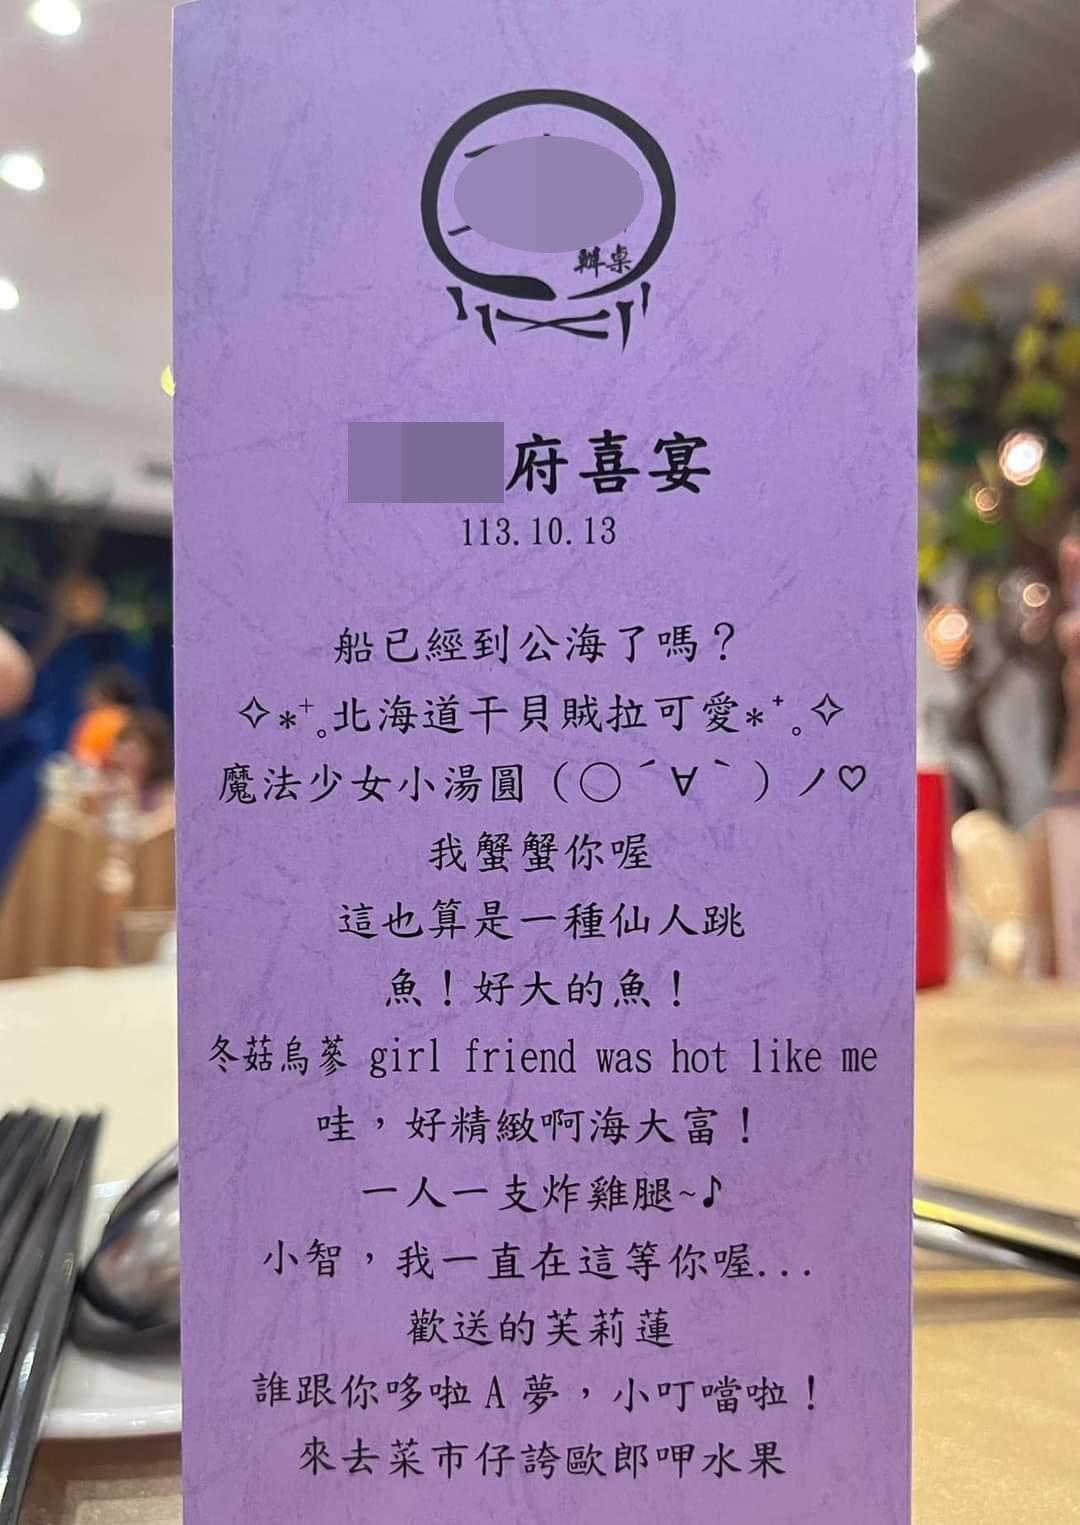 辦桌
府喜宴
113.10.13
船已經到公海了嗎？
✧*⁺˳北海道干貝賊拉可愛*⁺˳✧
魔法少女小湯圓（◯´∀｀）ノ♡
我蟹蟹你喔
這也算是一種仙人跳
魚！好大的魚！
冬菇烏蔘 girl friend was hot like me
哇，好精緻啊海大富！
一人一支炸雞腿~♪
小智，我一直在這等你喔...
歡送的芙莉蓮
誰跟你哆啦A夢，小叮噹啦！
來去菜市仔誇歐郎呷水果